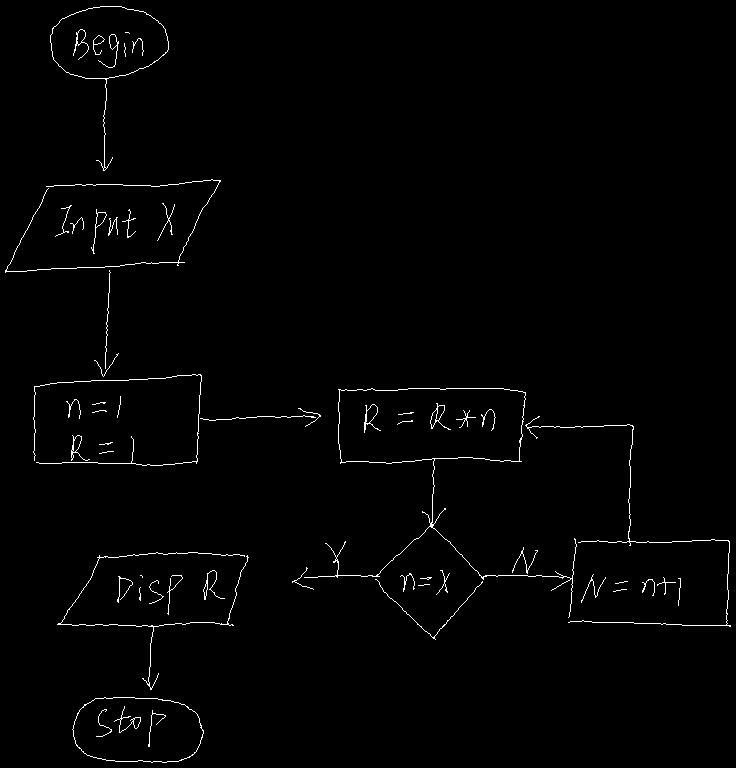 Begin
Input X
n=1
R=1
R = R*n
n=X
Y
N
N=n+1
Disp R
Stop